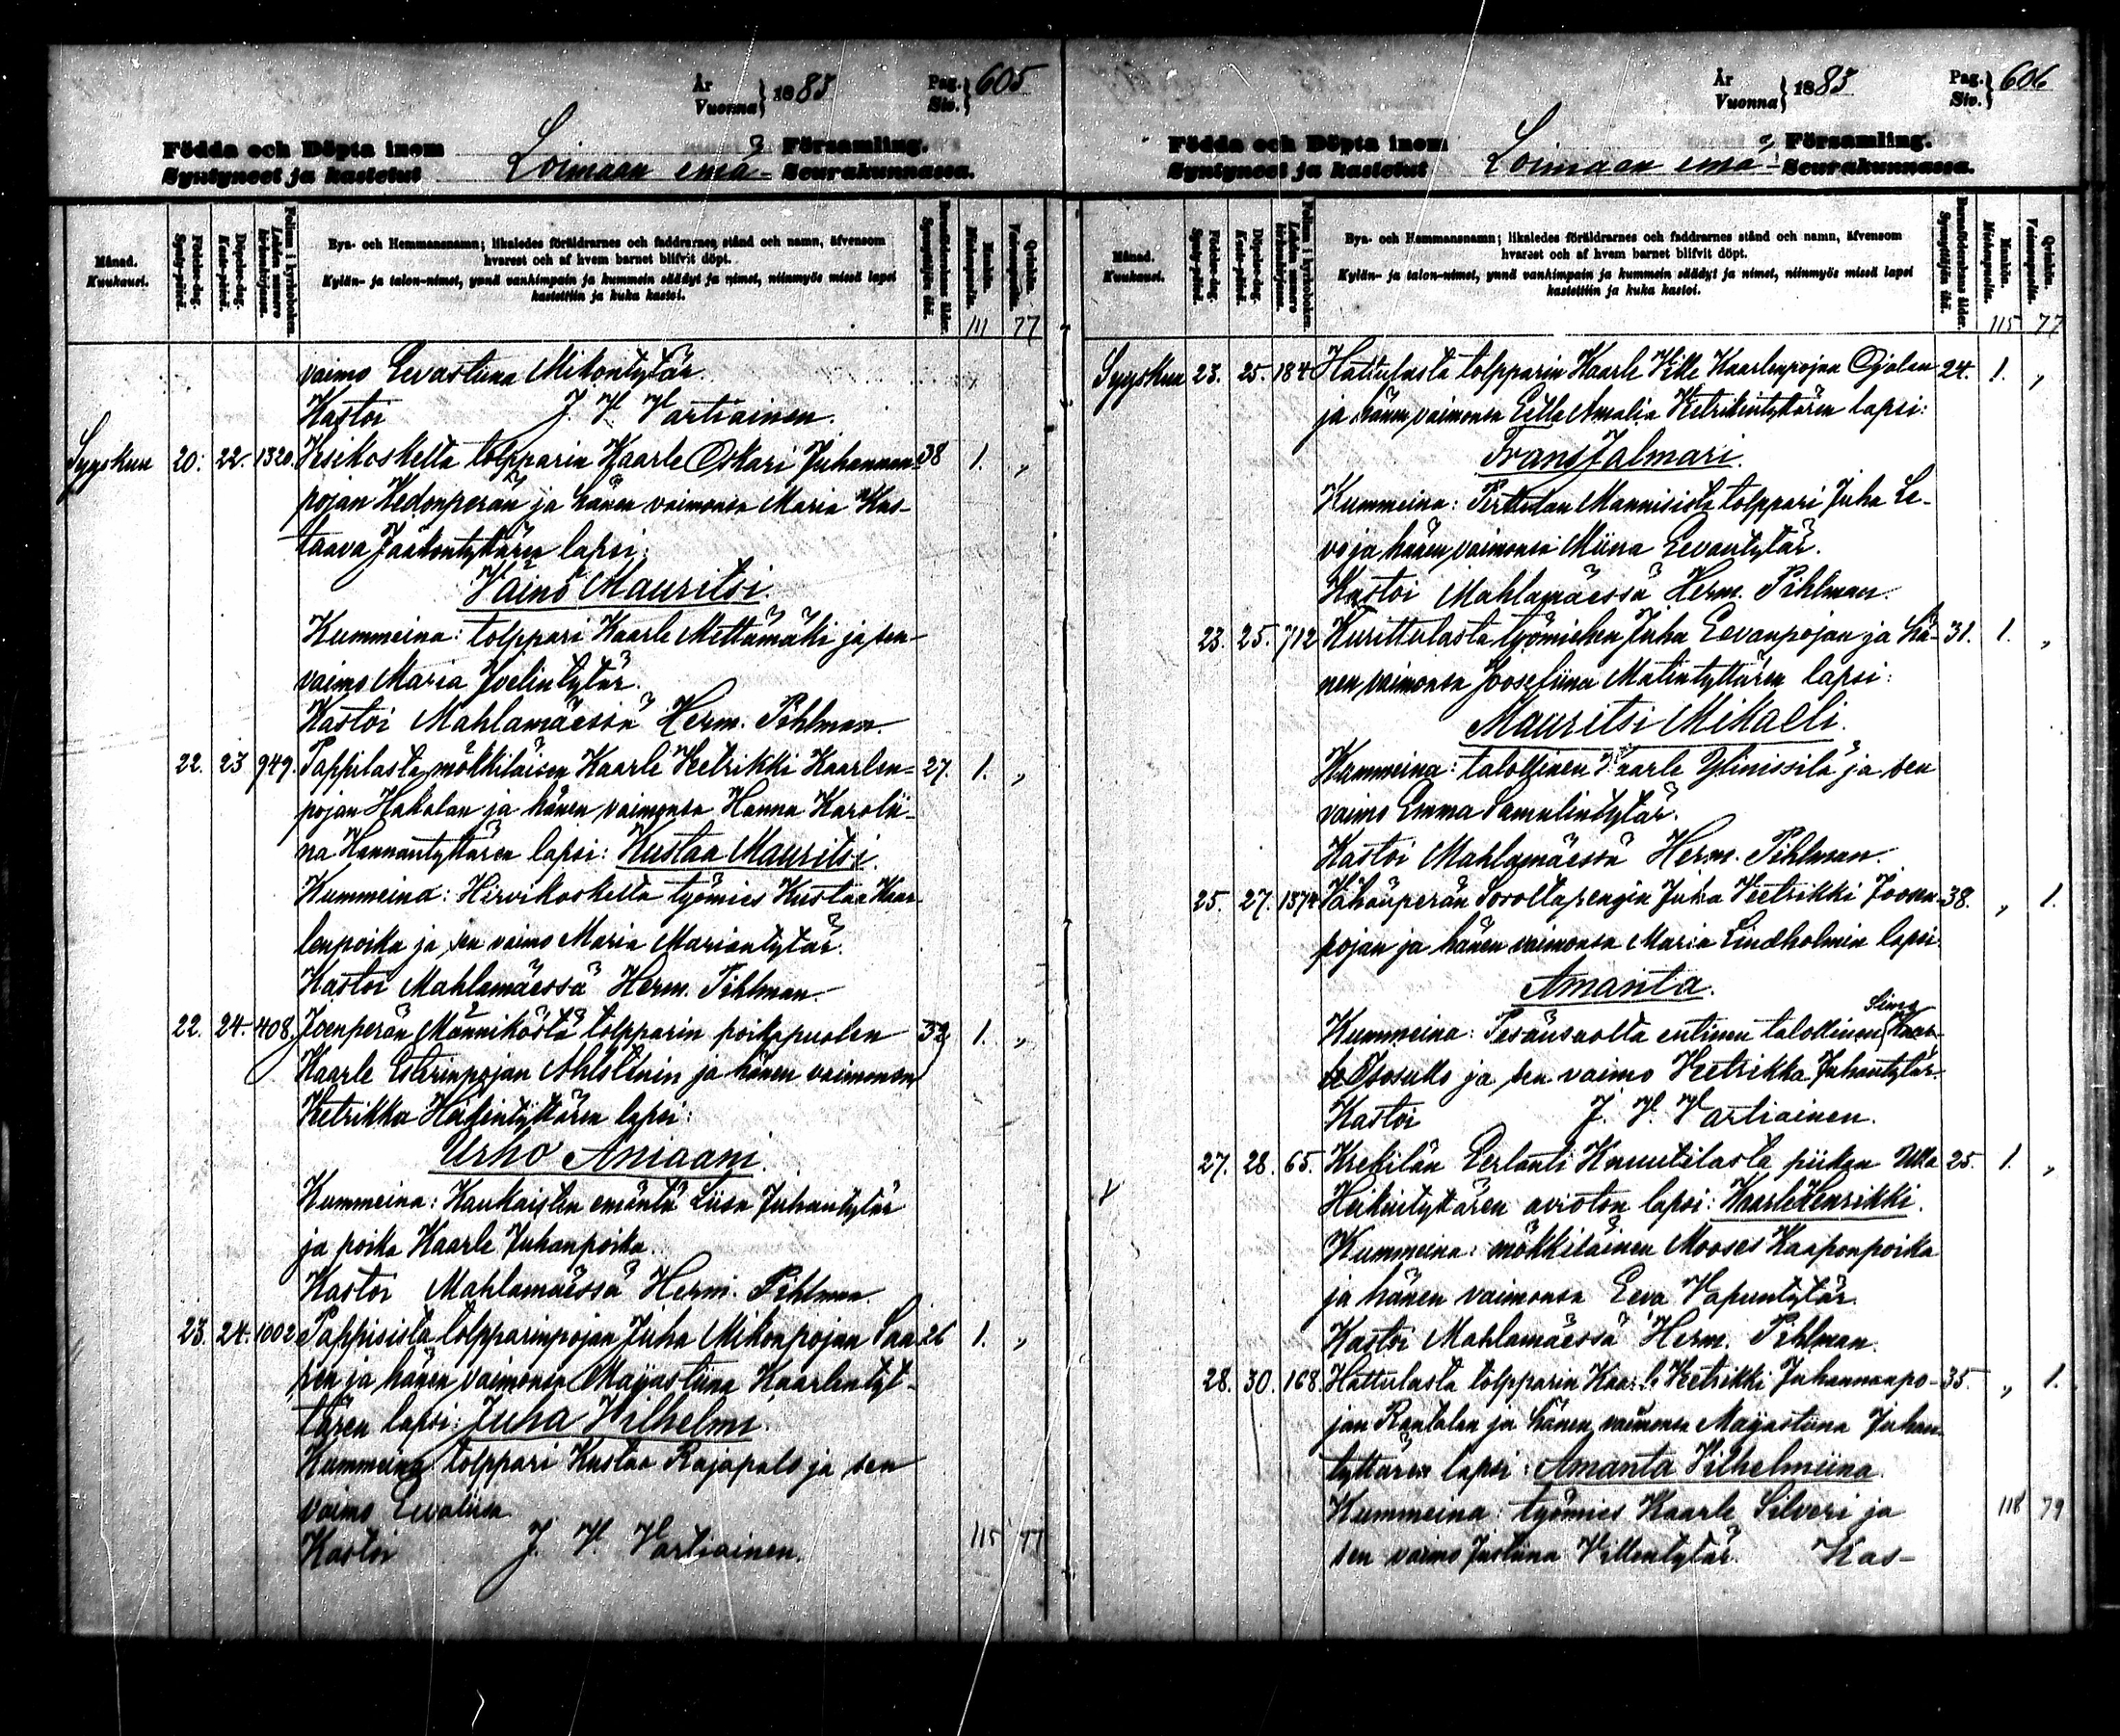 År
Vuonna } 1883 Pag.
Siv. } 605
Födda och Döpta inom
Syntyneet ja kastetut Loimaan emä- Församling.
Seurakunnassa.
Månad.
Kuukausi.
Födelse-dag.
Synty-päivä.
Döpelse-dag.
Kaste-päivä.
Bya- och Hemmansnamn; likaledes föräldrarnes och faddrarnes stånd och namn, äfvensom
hvarest och af hvem barnet blifvit döpt.
Kylän- ja talon-nimet, ynnä vanhimpain ja kummein säädyt ja nimet, niinmyös missä lapsi
kastettiin ja kuka kastoi.
111 77
vaimo Eevastiina Mikontytär.
Kastoi J. V. Vartiainen.
Syyskuu 20. 22. 1320. Vesikoskelta tolpparin Kaarle Oskari Juhannan- 38 1. „
pojan Kedonperän ja hänen vaimonsa Maria Kus-
taava Jaakontyttären lapsi:
Väinö Mauritsi.
Kummeina: tolppari Kaarle Mettämäki ja sen
vaimo Maria Joelintytär.
Kastoi Mahlamäessä Herm. Pihlman.
22. 23 949. Pappilasta mökkiläisen Kaarle Vetrikki Kaarlen- 27. 1. „
pojan Hakalan ja hänen vaimonsa Hanna Karolii-
na Hannantyttären lapsi: Kustaa Mauritsi.
Kummeina: Hirvikoskelta työmies Kustaa Kaar-
lenpoika ja sen vaimo Maria Mariantytär.
Kastoi Mahlamäessä Herm. Pihlman.
22. 24. 408. Joenperän Männiköstä tolpparin poikapuolen 32 1. „
Kaarle Esterinpojan Ahlstenin ja hänen vaimonsa
Vetrikka Heikintyttären lapsi:
Urho Aniaani.
Kummeina: Kaukaisten emäntä Liisa Juhantytär
ja poika Kaarle Juhanpoika.
Kastoi Mahlamäessä Herm. Pihlman.
23. 24. 1002 Pappisista tolpparinpojan Juha Mikonpojan Saa- 26 1. „
ren ja hänen vaimonsa Majastiina Kaarlentyt-
tären lapsi: Juha Vilhelmi.
Kummeina tolppari Kustaa Rajapalo ja sen
vaimo Eevaliisa
Kastoi J. V. Vartiainen. 115 77
År
Vuonna } 1883 Pag.
Siv. } 606
Födda och Döpta inom
Syntyneet ja kastetut Loimaan emä- Församling.
Seurakunnassa.
Månad.
Kuukausi.
Födelse-dag.
Synty-päivä.
Döpelse-dag.
Kaste-päivä.
Bya- och Hemmansnamn; likaledes föräldrarnes och faddrarnes stånd och namn, äfvensom
hvarest och af hvem barnet blifvit döpt.
Kylän- ja talon-nimet, ynnä vanhimpain ja kummein säädyt ja nimet, niinmyös missä lapsi
kastettiin ja kuka kastoi.
115 77
Syyskuu 23. 25. 184 Hattulasta tolpparin Kaarle Ville Kaarlenpojan Ojalan 24. 1. „
ja hänen vaimonsa Eetla Amalia Vetrikintyttären lapsi:
Frans Jalmari.
Kummeina: Perttulan Mannisista tolppari Juha Le-
vo ja hänen vaimonsa Miina Eevantytär.
Kastoi Mahlamäessä Herm. Pihlman.
23. 25. 712 Kurittulasta työmiehen Juha Eevanpojan ja hä- 31. 1. „
nen vaimonsa Joosefiina Matintyttären lapsi:
Mauritsi Mikaeli.
Kummeina: talollinen Kaarle Ylinissilä ja sen
vaimo Emma Samulintytär.
Kastoi Mahlamäessä Herm. Pihlman.
25. 27. 1374 Vähänperän Sorolta rengin Juha Vetrikki Joosen- 38. „ 1.
pojan ja hänen vaimonsa Maria Lindholmin lapsi
Amanta.
Kummeina: Pesänsuolta entinen talollinen Kaar-
ja sen vaimo Vetrikka Juhantytär.
Kastoi J. V. Vartiainen.
27. 28. 65. Krekilän Eerlanti Knuutilasta piikan Ulla 25. 1. „
Heikintyttären avioton lapsi: Kaarle Henrikki.
Kummeina: mökkiläinen Mooses Kaaponpoika
ja hänen vaimonsa Eeva Vapuntytär.
Kastoi Mahlamäessä Herm. Pihlman.
28. 30. 168. Hattulasta tolpparin Kaarle Vetrikki Juhannanpo- 35. „ 1.
jan Rantalan ja hänen vaimonsa Majastiina Juhan-
tyttären lapsi: Amanta Vilhelmiina.
Kummeina: työmies Kaarle Silveri ja 118 79
sen vaimo Justiina Villentytär. Kas-